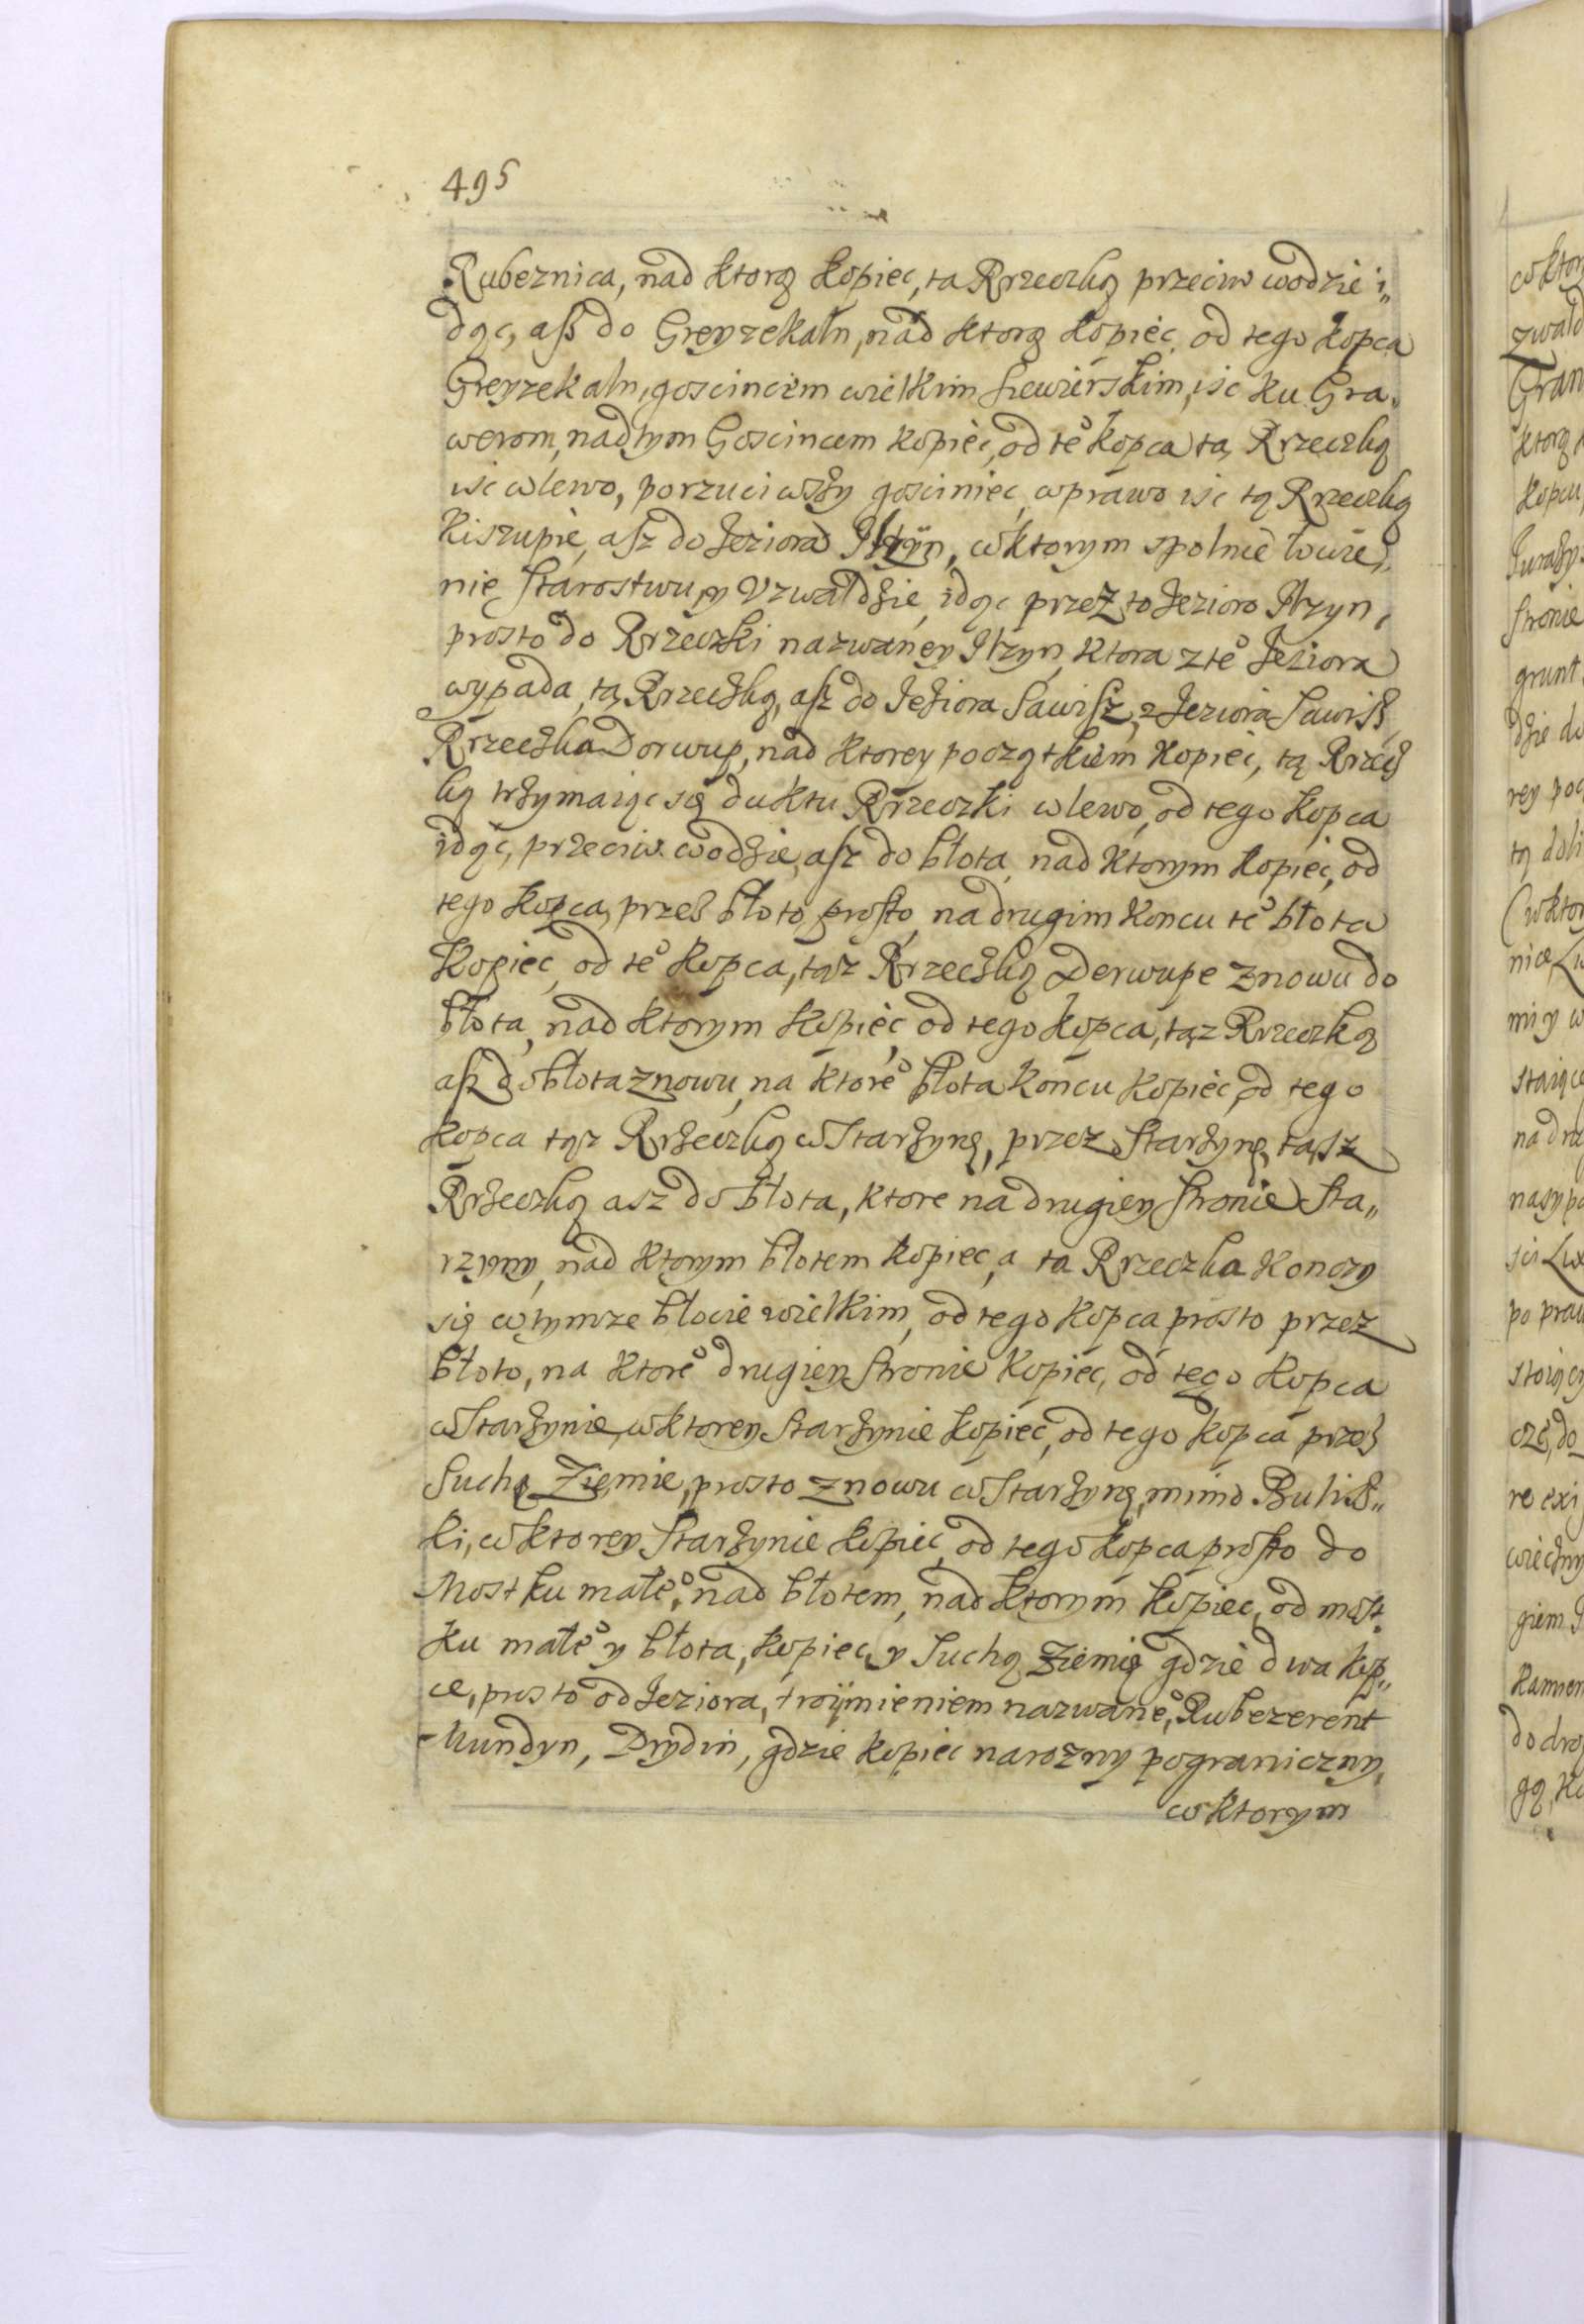 495
Rubeznica, nad ktorą kopiec, ta Rrzeczką przeciw wodzie i„
dąc, asz do Greyzekaln, nad ktorą kopiec, od tego kopca
Greyzekaln, goscincem wielkim Siewierskim, isc ku Gra„
werom, nad tym Goscincem kopiec, od te° kopca tą Rrzeczką
isc wlewo, porzuciwszy gosciniec, wprawo isc tą Rrzeczką
Kiszupie, asz do Jeziora Istzyn, w ktorym spolnie łowie„
nie Starostwu, y Vzwałdzie, idąc przez to Jezioro Itzyn,
prosto do Rrzeczki nazwaney Itzyn, ktora z te° Jeziora
wypada, tą Rrzeczką, asz do Jeziora Sawisz, z Jeziora Sawisz
Rrzeczka Dorwup, nad ktorey początkiem kopiec, tą Rrzecz
ką trzymaiąc się duktu Rrzeczki wlewo, od tego kopca
idąc, przeciw wodzie, asz do błota, nad ktorym kopiec, od
tego kopca, przez błoto prosto, na drugim koncu te° błota
kopiec, od te° kopca, tąsz Rrzeczką Derwupe znowu do
błota, nad ktorym kopiec, od tego kopca, tąz Rrzeczką
asz do błota znowu, na ktore° błota koncu kopiec, od tego
kopca tąsz Rrzeczką w Starzynę, przez Starzynę, tąsz
Rrzeczką asz do błota, ktore na drugiey stronie Sta„
rzyny, nad ktorym błotem kopiec, a ta Rrzeczka konczy
się w tymze błocie wielkim, od tego kopca prosto przez
błoto, na ktore° drugiey stronie kopiec, od tego kopca
w Starzynie, w ktorey Starzynie kopiec, od tego kopca przez
Suchą Ziemie, prosto znowu w Starzynę, mimo Bulisz„
ki, w ktorey Starzynie kopiec, od tego kopca prosto do
Mostku małe°, nad błotem, nad ktorym kopiec, od most„
ku małe° y błota, kopiec, y Suchą Ziemię gdzie dwa kop„
ce, prosto od Jeziora, troiymieniem nazwane°, Rubezerent
Mundyn, Drydin, gdzie kopiec narozny pograniczny,
w ktorym